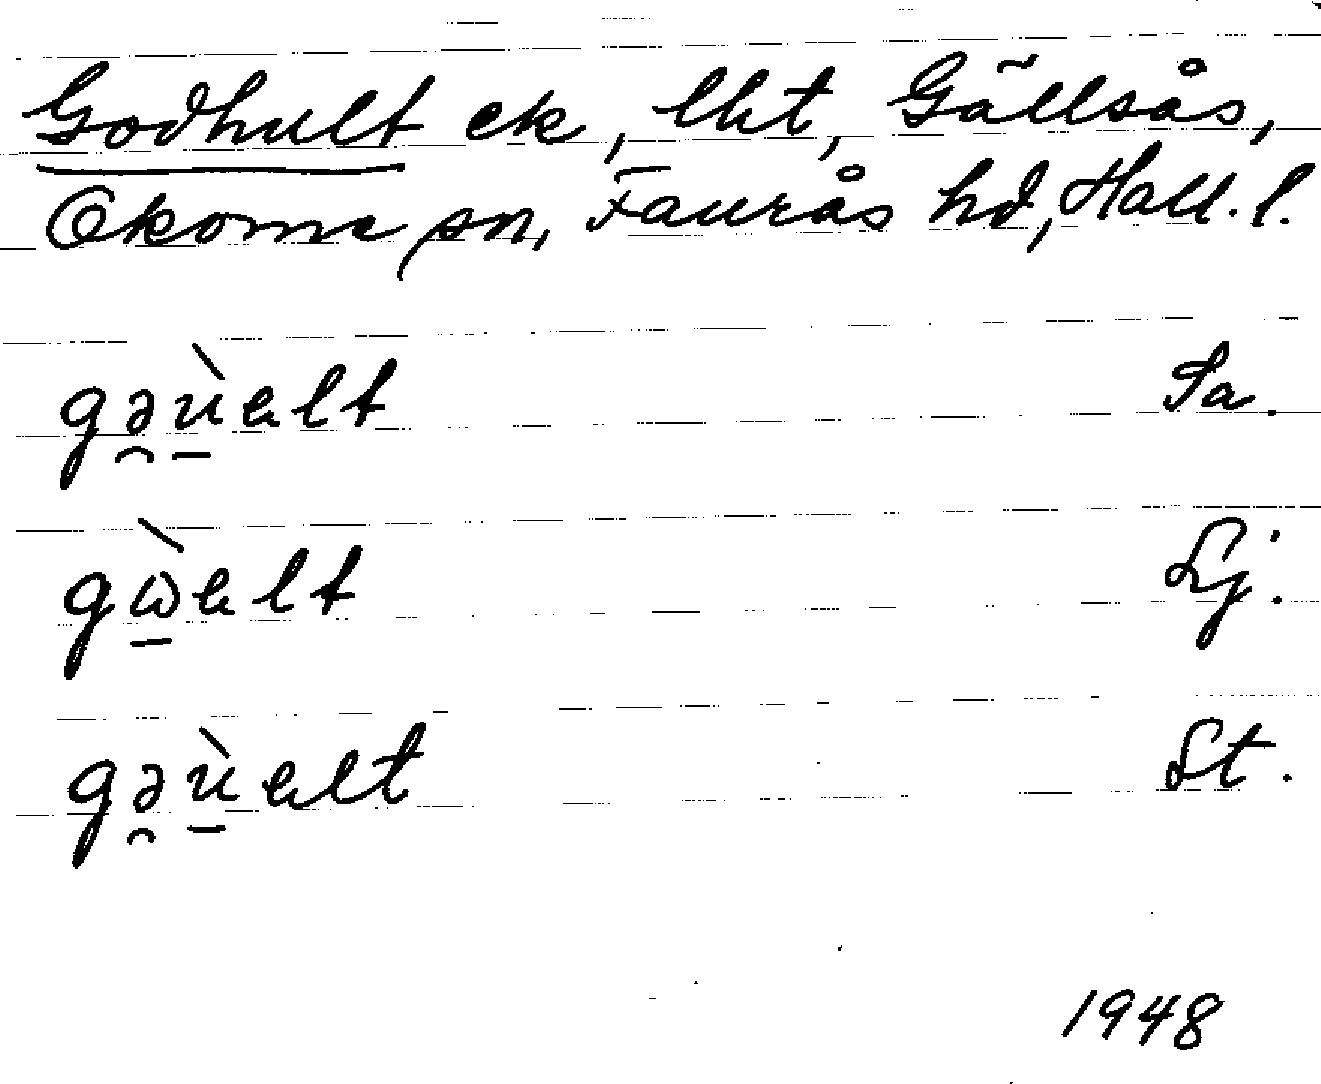 Godhult ek, lht, Gällsås,
Okome sn, Faurås hd, Hall. l.
gə̯ù̱elt Sa.
gὼ̱elt Lj.
gə̯ù̱elt St.
1948